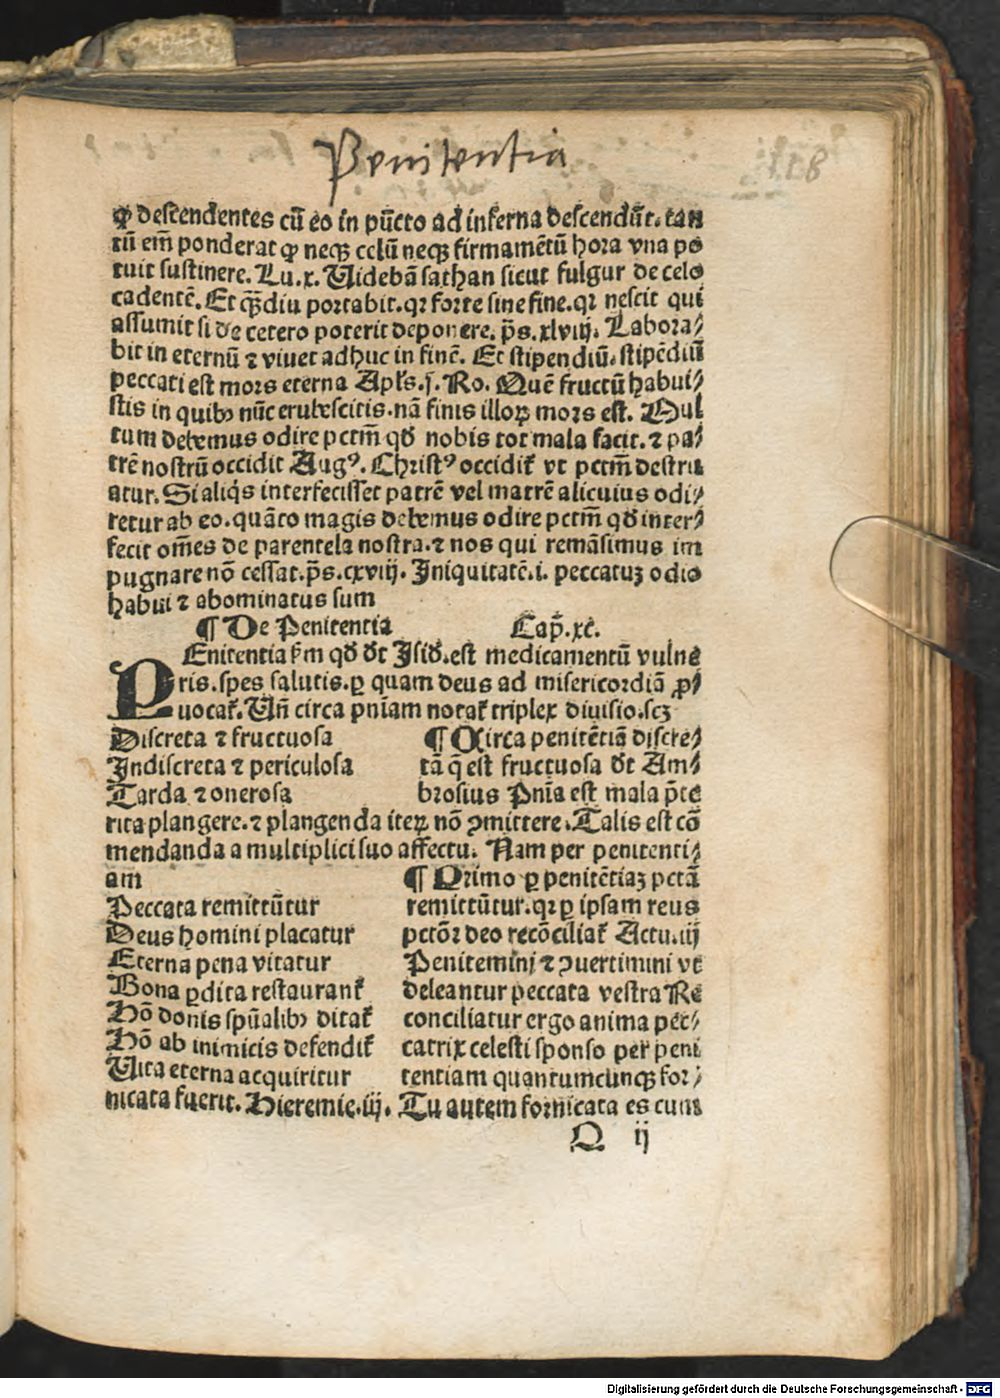 Penitentia
ꝙ descendentes cū eo in pūcto ad inferna descendūt. tan
tū em̄ ponderat ꝙ neqꝫ celū neqꝫ firmamētū hora vna po
tuit sustinere. Lu.x. Uidebā sathan sicut fulgur de celo
cadentē. Et qꝫ̄diu portabit. qꝛ forte sine fine. qꝛ nescit qui
assumit si de cetero poterit deponere. p̄s. xlviij. Labora⸗
bit in eternū ⁊ viuet adhuc in finē. Et stipendiū. stipēdiū
peccati est mors eterna Apl̄s. j. Ro. Quē fructū habui⸗
stis in quibꝰ nūc erubescitis. nā finis illoꝝ mors est. Mul
tum debemus odire pctm̄ qd̄ nobis tot mala facit. ⁊ pa⸗
trē nostrū occidit Augꝰ. Christꝰ occidit̄ vt pctm̄ destru
atur. Si aliq̄s interfecisset patrē vel matrē alicuius odi⸗
retur ab eo. quāto magis debemus odire pctm̄ qd̄ inter⸗
fecit om̄es de parentela nostra. ⁊ nos qui remāsimus im
pugnare nō cessat. p̄s. cxviij. Iniquitatē. i. peccatuꝫ odio
habui ⁊ abominatus sum
¶ De Penitentia Cap̄. xc.
PEnitentia ẜm qd̄ dt̄ Isid̄. est medicamentū vulne
ris. spes salutis. ꝑ quam deus ad misericordiā ꝓ⸗
uocat̄. Un̄ circa pn̄iam notat̄ triplex diuisio. scꝫ
Discreta ⁊ fructuosa
Indiscreta ⁊ periculosa
Tarda ⁊ onerosa
¶ Circa penitētiā discre⸗
tā q̄ est fructuosa dt̄ Am⸗
brosius Pn̄ia est mala p̄te
rita plangere. ⁊ plangenda iteꝝ nō ꝯmittere. Talis est cō
mendanda a multiplici suo affectu. Nam per penitenti⸗
am
Peccata remittūtur
Deus homini placatur
Eterna pena vitatur
Bona ꝑdita restaurant̄
Hō donis spūalibꝰ ditat̄
Hō ab inimicis defendit̄
Uita eterna acquiritur
¶ Primo ꝑ penitētiaꝫ pctā
remittūtur. qꝛ ꝑ ipsam reus
pctōꝛ deo recōciliat̄ Actu. iij
Penitemini ⁊ ꝯuertimini vt
deleantur peccata vestra Re
conciliatur ergo anima pec⸗
catrix celesti sponso per peni
tentiam quantumcūnqꝫ for⸗
nicata fuerit. Hieremie. iij. Tu autem fornicata es cum
Q ij
Digitalisierung gefördert durch die Deutsche Forschungsgemeinschaft - DFG